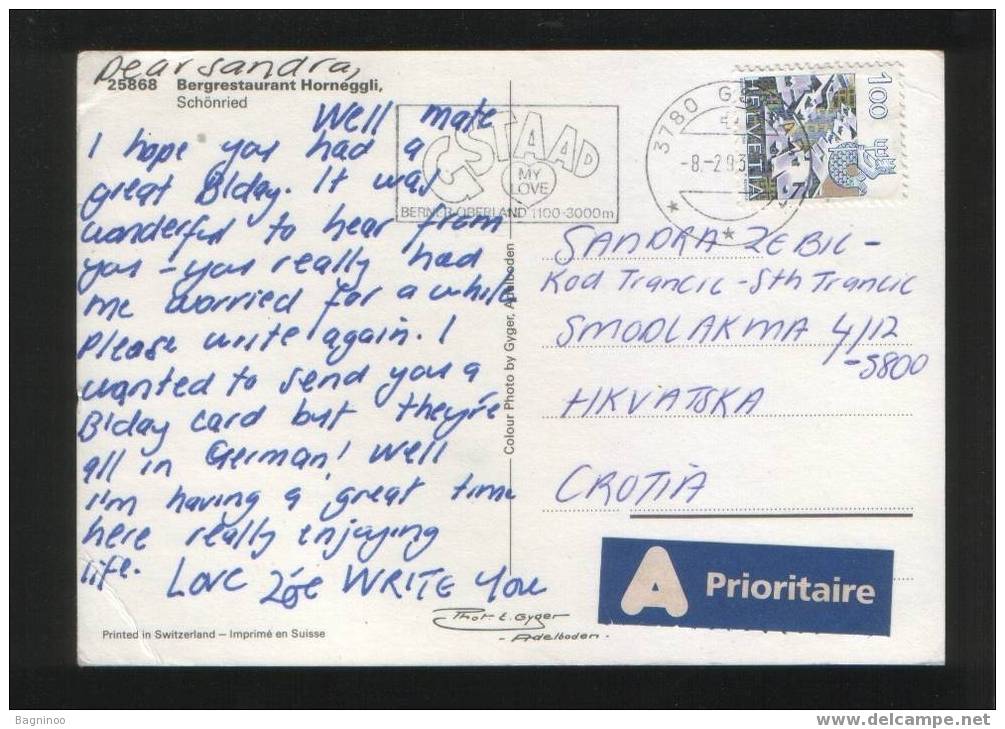 Dear Sandra,
25868 Bergrestaurant Horneggli,
Schönried
Well mate
I hope you had a
great B/day. It was
wonderful to hear from
you - you really had
me worried for a while
Please write again. I
wanted to send you a
B/day card but they're
all in German! Well
I'm having a great time
here really enjoying
life. Love Zöe WRITE YOU
Printed in Switzerland – Imprimé en Suisse
Phot. E. Gyger
- Adelboden.
Colour Photo by Gyger, Adelboden
GSTAAD
MY
LOVE
BERNER OBERLAND 1100-3000m
3780
-8.-2.93
HELVETIA
100
SANDRA ZEBIC -
Kod Trancic - Sth Trancic
SMODLAKMA 4/12
-5800
HKVATSKA
CROTIA
A Prioritaire
Bagninoo
www.delcampe.net